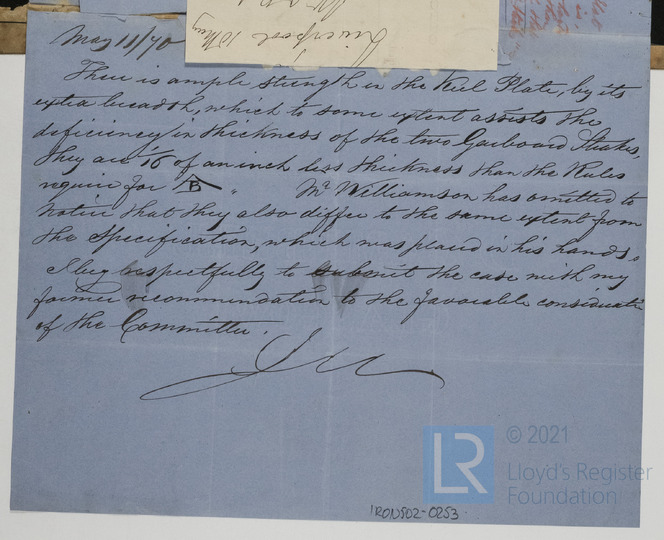 Liverpool 10 May
May 11/70
There is ample strength in the Keel Plate, by its
extra breadth, which to some extent assists the
deficiency in thickness of the two Garboard Strakes,
they are 1/16 of an inch less thickness than the Rules
require for B " Mr. Williamson has omitted to
notice that they also differ to the same extent from
the Specification, which was placed in his hands.
I beg respectfully to submit the case with my
former recommendation to the favorable considerati
of the Committee.
LR
© 2021
Lloyd's Register
Foundation
IRON502-0253